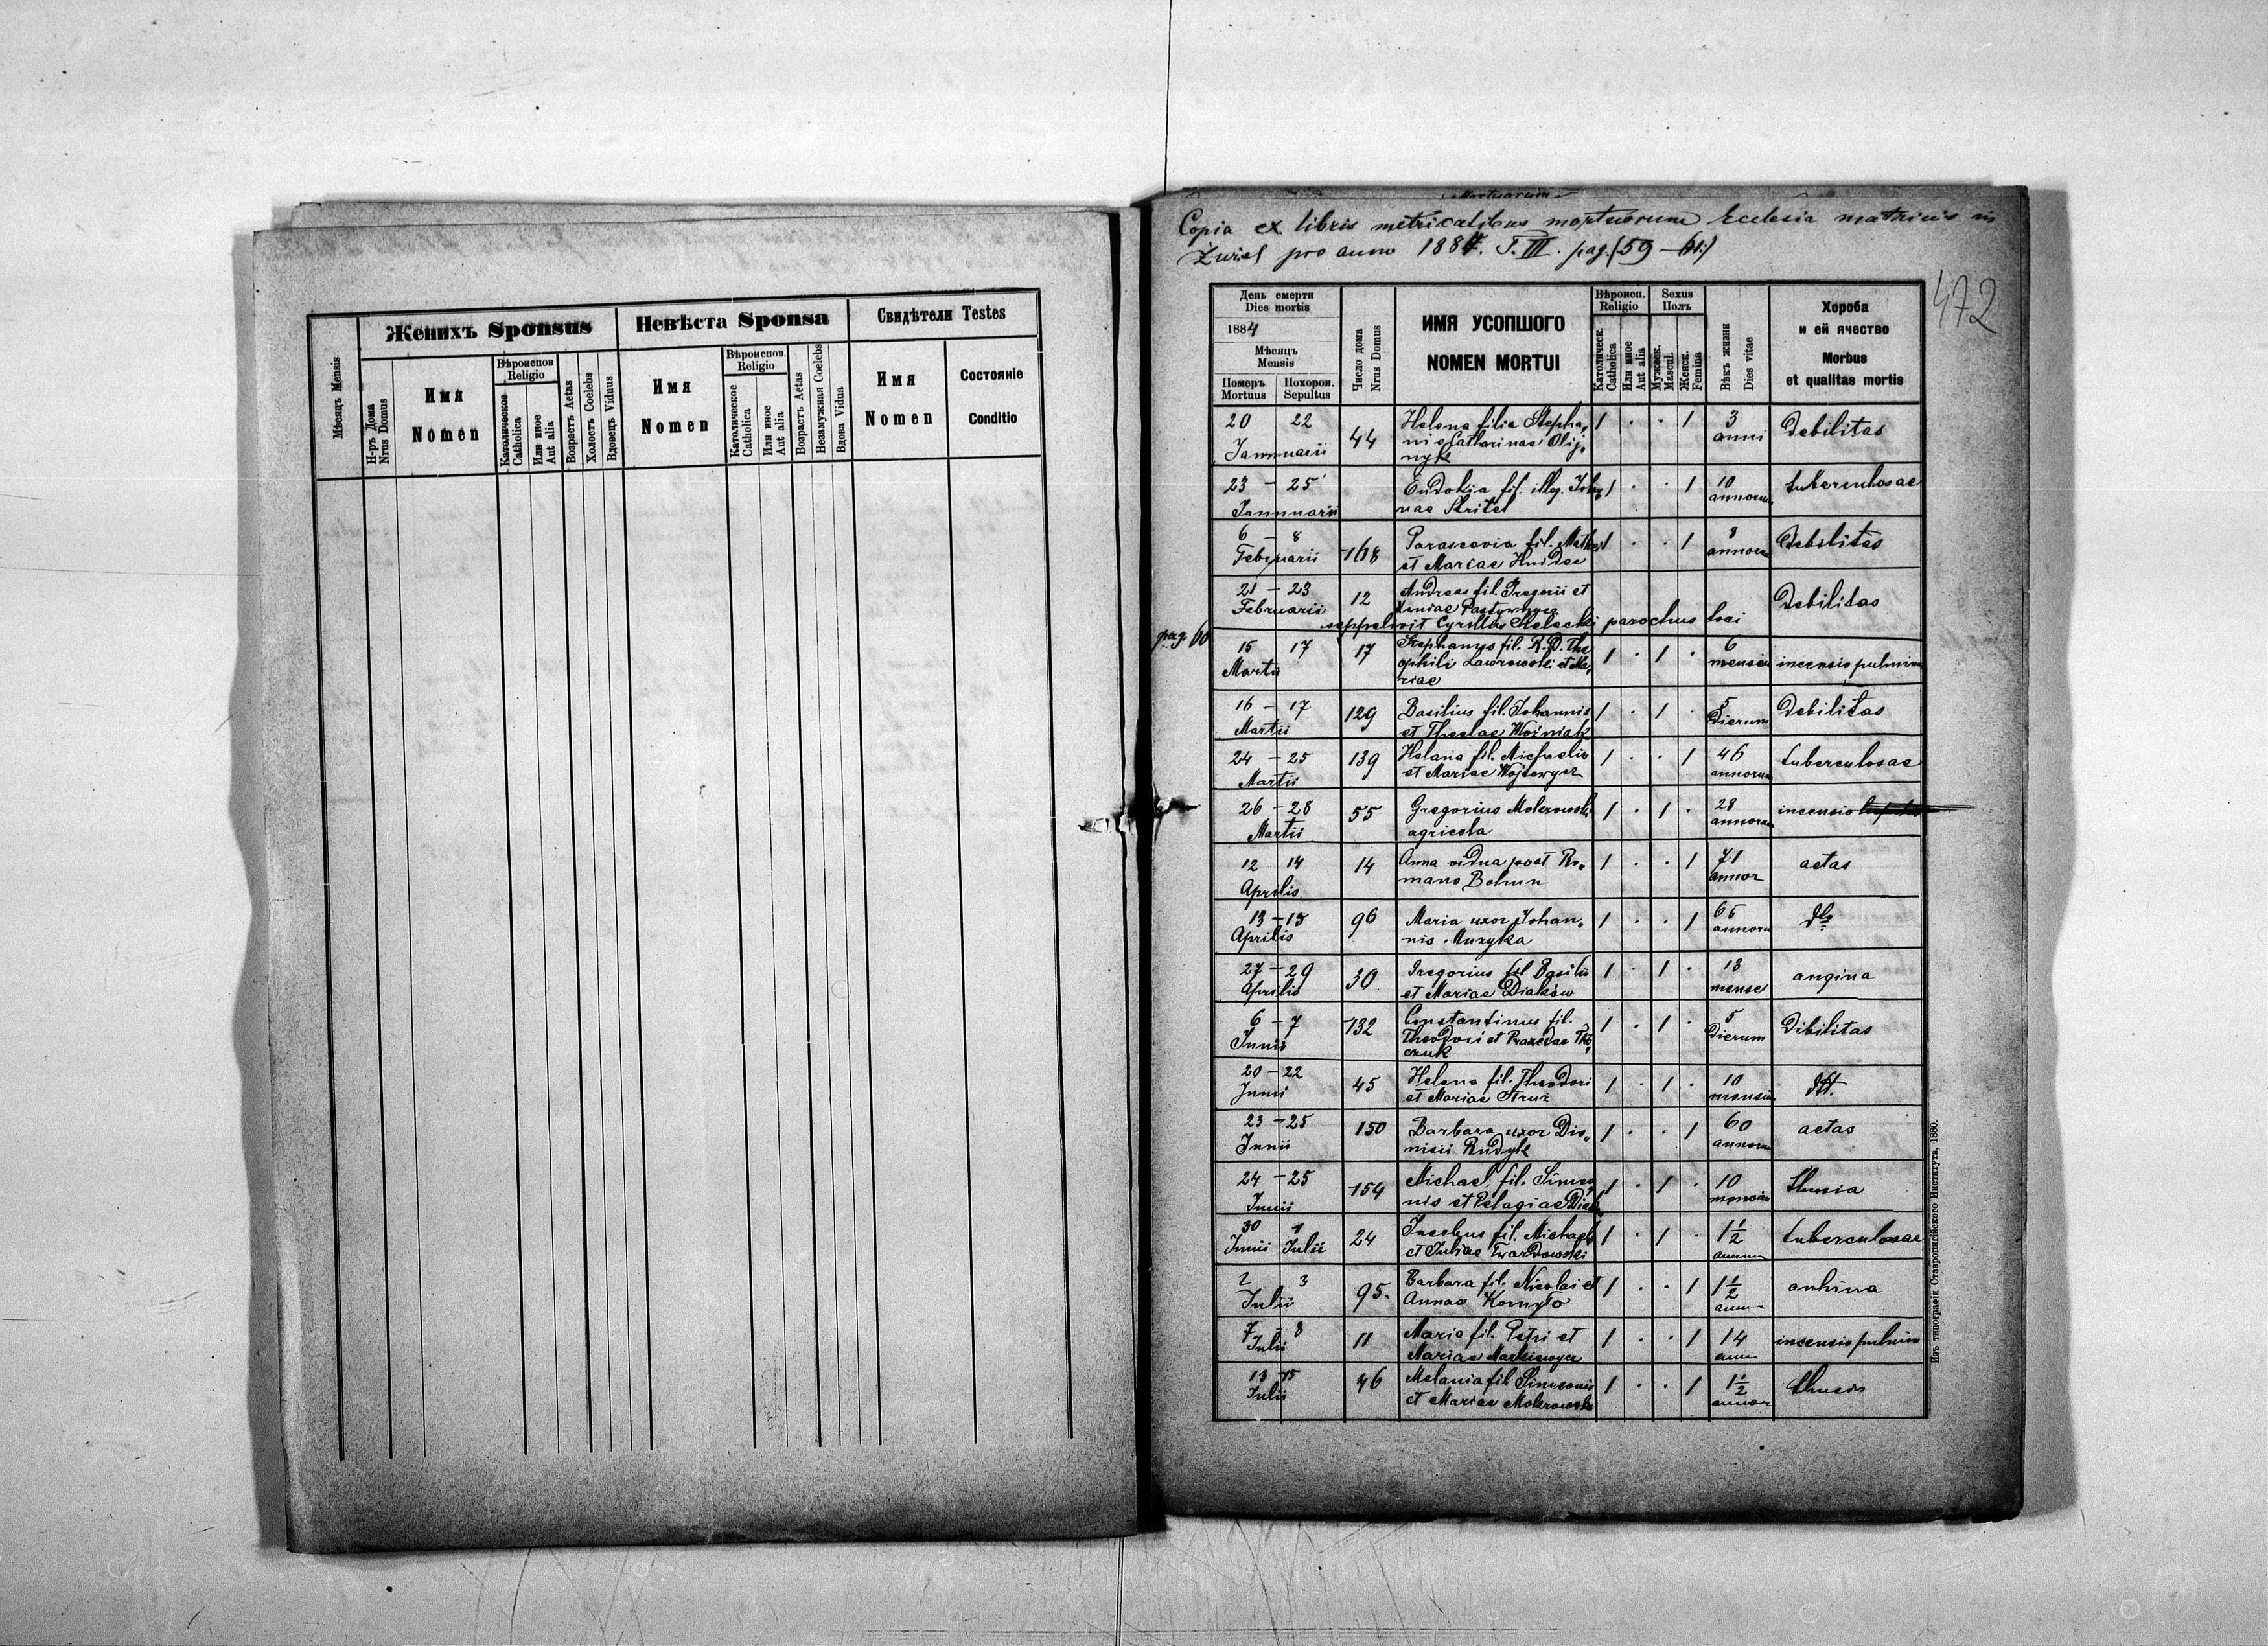 Мѣсяцъ Mensis
Женихъ Sponsus
Невѣста Sponsa
Свидѣтели Testes
Н-ръ Дома
Nrus Domus
Имя
Nomen
Вѣроиспов
Religio
Католическое
Catholica
Или иное
Aut alia
Возрастъ Aetas
Холостъ Coelebs
Вдовецъ Viduus
Имя
Nomen
Вѣроиспов.
Religio
Католическое
Catholica
Или иное
Aut alia
Возрастъ Aetas
Незамужная Coelebs
Вдова Vidua
Имя
Nomen
Состояніе
Conditio
Mortuorum
Copia ex libris metricalibus mortuorum Ecclesia matricis in
Żurel pro anno 1884. T. III. pag. (59 - 61)
472
День смерти
Dies mortis
1884
Мѣсяцъ
Mensis
Померъ
Mortuus
Похорон.
Sepultus
Число дома
Nrus Domus
ИМЯ УСОПШОГО
NOMEN MORTUI
Вѣроисп.
Religio
Католическ.
Catholica
Или иное
Aut alia
Sexus
Полъ
Мужеск.
Mascul.
Женск.
Femina
Вѣкъ жизни
Dies vitae
Хороба
и ей ячество
Morbus
et qualitas mortis
20 22 Helena filia Stepha, 1 . . 1 3
Jannuarii 44 nis Catharinae Olij, anni Debilitas
nyk
23 - 25 Eudokia fil. illeg. Joha, 1 . . 1 10 tuberculosae
Jannuarii nae Stritel annorum
6 - 8 168 Parascevia fil. Mathei 1 . . 1 8 Debilitas
Februarii et Mariae Hudse annorum
21 - 23 12 Andreas fil. Gregorii et Debilitas
Februarii Xeniae Pastywnycz
seppelivit Cyrillus Sielecki parochus loci
pag. 60
15 17 17 Stephanus fil. R. D. The, 1 . 1 . 6
Martii ophili Lawrowski et Ma, mensium incensio pulminum
riae
16 - 17 129 Basilius fil. Johannis 1 . 1 . 5 Debilitas
Martii et Theclae Woźniak Dierum
24 - 25 139 Helana fil. Michaelis 1 . . 1 46 tuberculosae
Martii et Mariae Wojtowycz annorum
26 - 28 55 Gregorius Mokrowski 1 . 1 . 28 incensio
Martii agricola annorum
12 14 14 Anna vidua post Ro, 1 . . 1 71 aetas
Aprilis mano Bohun annor
13 - 15 96 Maria uxor Johan, 1 . . 1 65 dto
Aprilis nis Muzyka annoru
27 - 29 30 Gregorius fil Basilii 1 . 1 . 13 angina
Aprilis et Mariae Diaków menses
6 - 7 132 Constantinus fil. 1 . 1 . 5 Dibilitas
Junii Theodori et Praxedae Tka, Dierum
czuk
20 - 22 45 Helena fil. Theodori 1 . 1 . 10 dtt.
Junii et Mariae Struż mensium
23 - 25 150 Barbara uxor Dio, 1 . . 1 60 aetas
Junii nisii Rudyk annorum
24 - 25 154 Michael fil. Simeo, 1 . 1 . 10
Junii nis et Pelagiae mensium
30 1 24 Jacobus fil. Michaelis 1 . 1 . 1 1/2 tuberculosae
Junii Julii et Juliae Twardowski annum
2 3 95. Barbara fil. Nicolai et 1 . . 1 1 1/2
Julii Annae Kornyło
7 - 8 11 Maria fil. Petri et 1 . . 1 14 incensio pulmin
Julii Mariae Markiewycz
13 - 15 46 Melania fil Simeonis 1 . . 1 1 1/2
Julii et Mariae Mokrowski annor
Изъ типографіи Ставропигійского Института, 1880.